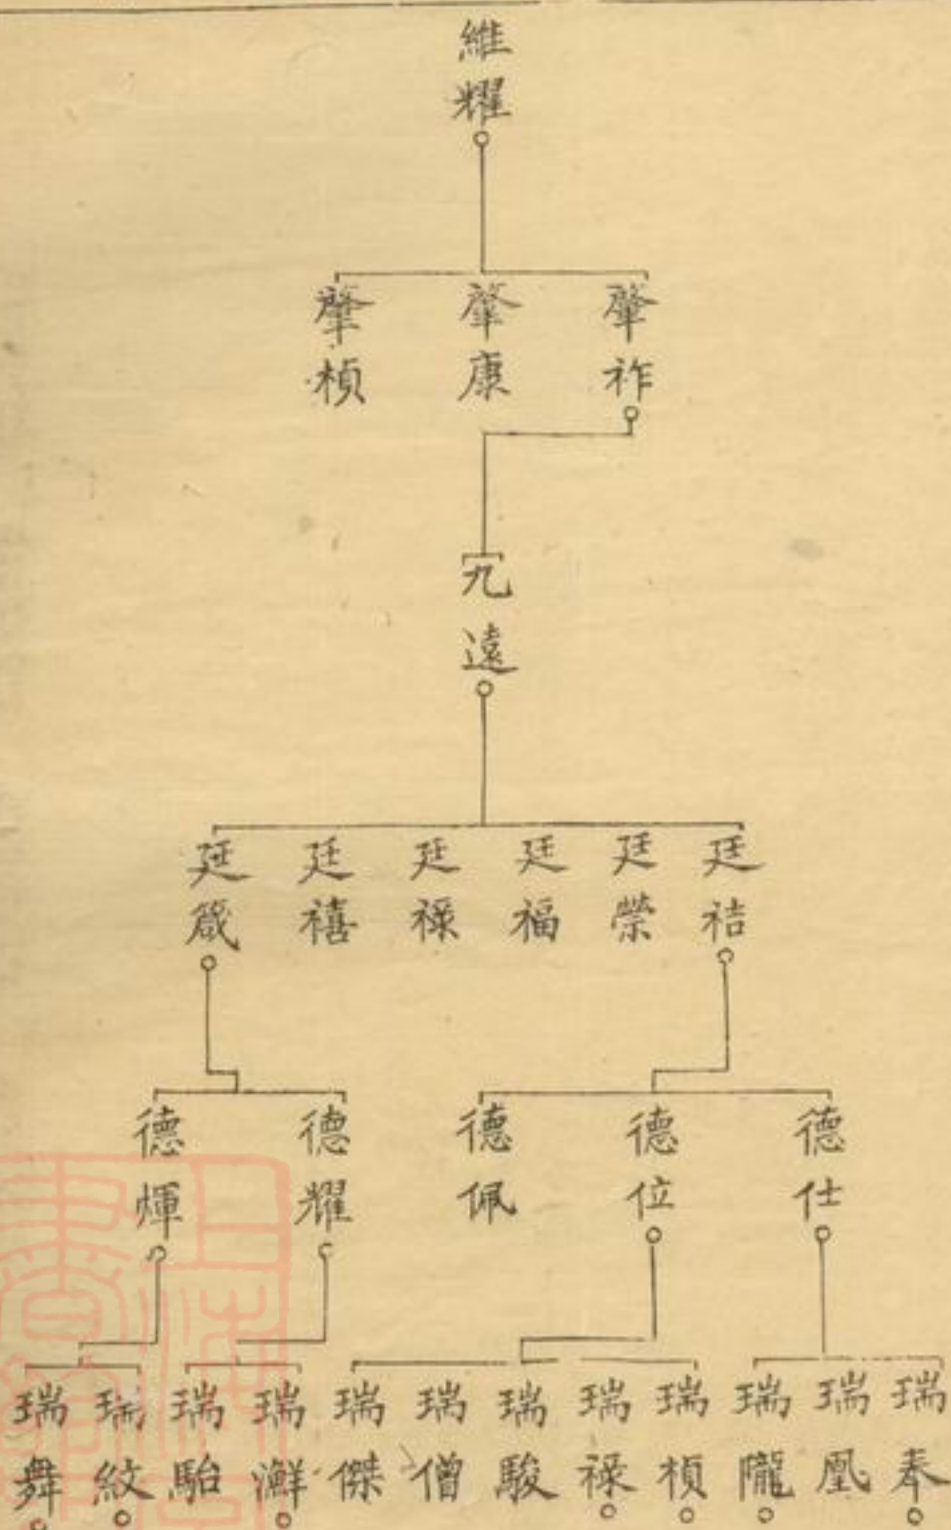 維耀
肇祚
肇康
肇楨
九遠
廷祮
廷榮
廷福
廷祿
廷禧
廷箴
德仕
德位
德佩
德耀
德煇
瑞奉
瑞凰
瑞隴
瑞楨
瑞祿
瑞駿
瑞僧
瑞傑
瑞瀰
瑞駘
瑞紋
瑞舞